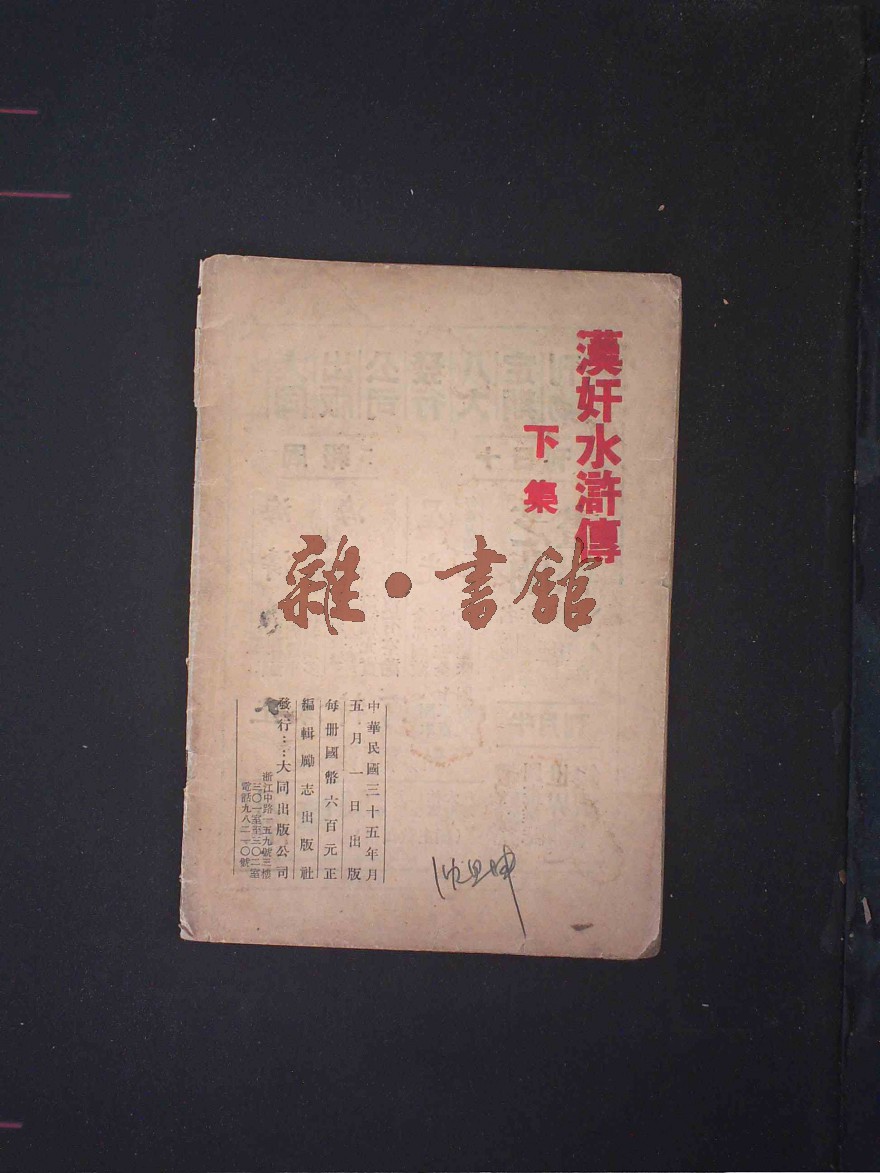 漢奸水滸傳
下集
雜·書館
中華民國三十五年月
五月一日出版
每册國幣六百元正
編輯勵志出版社
發行：：大同出版公司
浙江中路一五九號三樓
三〇一室至三〇二室
電話九八二一〇號